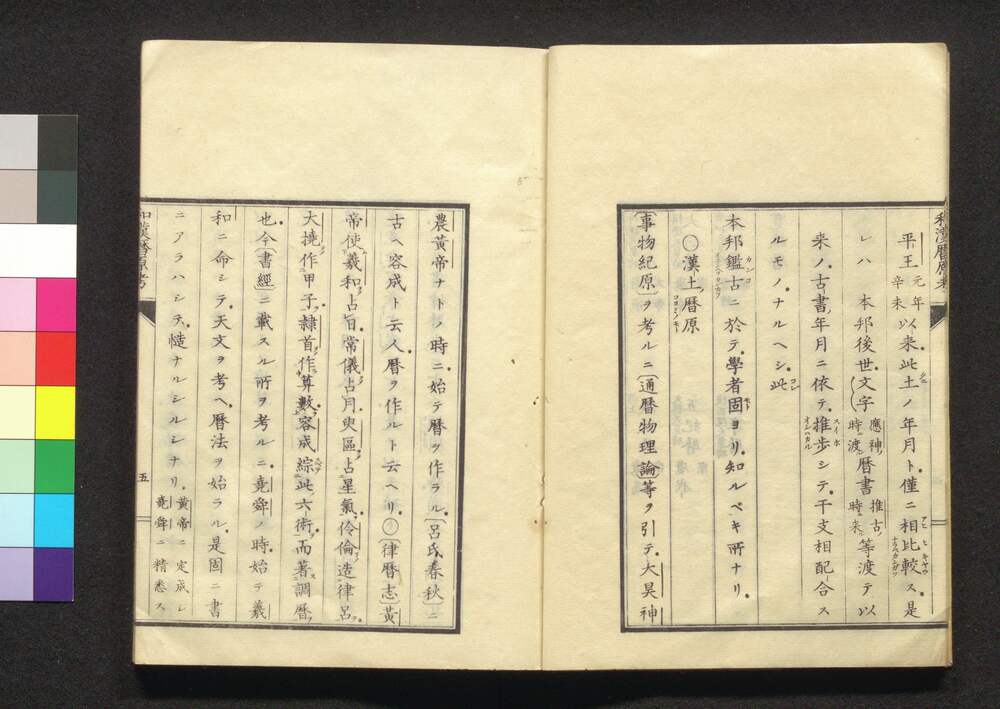 和漢暦原考
平王元年辛未以来此土ノ年月ト僅ニ相比較ス是
レハ 本邦後世文字應神ノ時渡ル暦書推古ノ時来ル等渡テ以
来ノ古書年月ニ依テ推歩シテ干支相配合ス
ルモノナルヘシ此
本邦鑑古ニ於テ學者固ヨリ知ルベキ所ナリ
〇漢土暦原
事物紀原ヲ考ルニ通暦物理論等ヲ引テ大昊神
農黄帝ナトノ時ニ始テ暦ヲ作ラル呂氏春秋ニ
古ヘ容成ト云人暦ヲ作ルト云ヘリ〇律暦志黄
帝使羲和占日常儀占月臾區占星氣伶倫造律呂
大撓作甲子隷首作算數容成綜此六術而著調暦
也今書經ニ載スル所ヲ考ルニ堯舜ノ時始テ羲
和ニ命シテ天文ヲ考ヘ暦法ヲ始ラル是固ニ書
ニアラハシテ慥ナルシルシナリ黄帝ニ定成シ堯舜ニ精悉ス
和漢暦原考
五